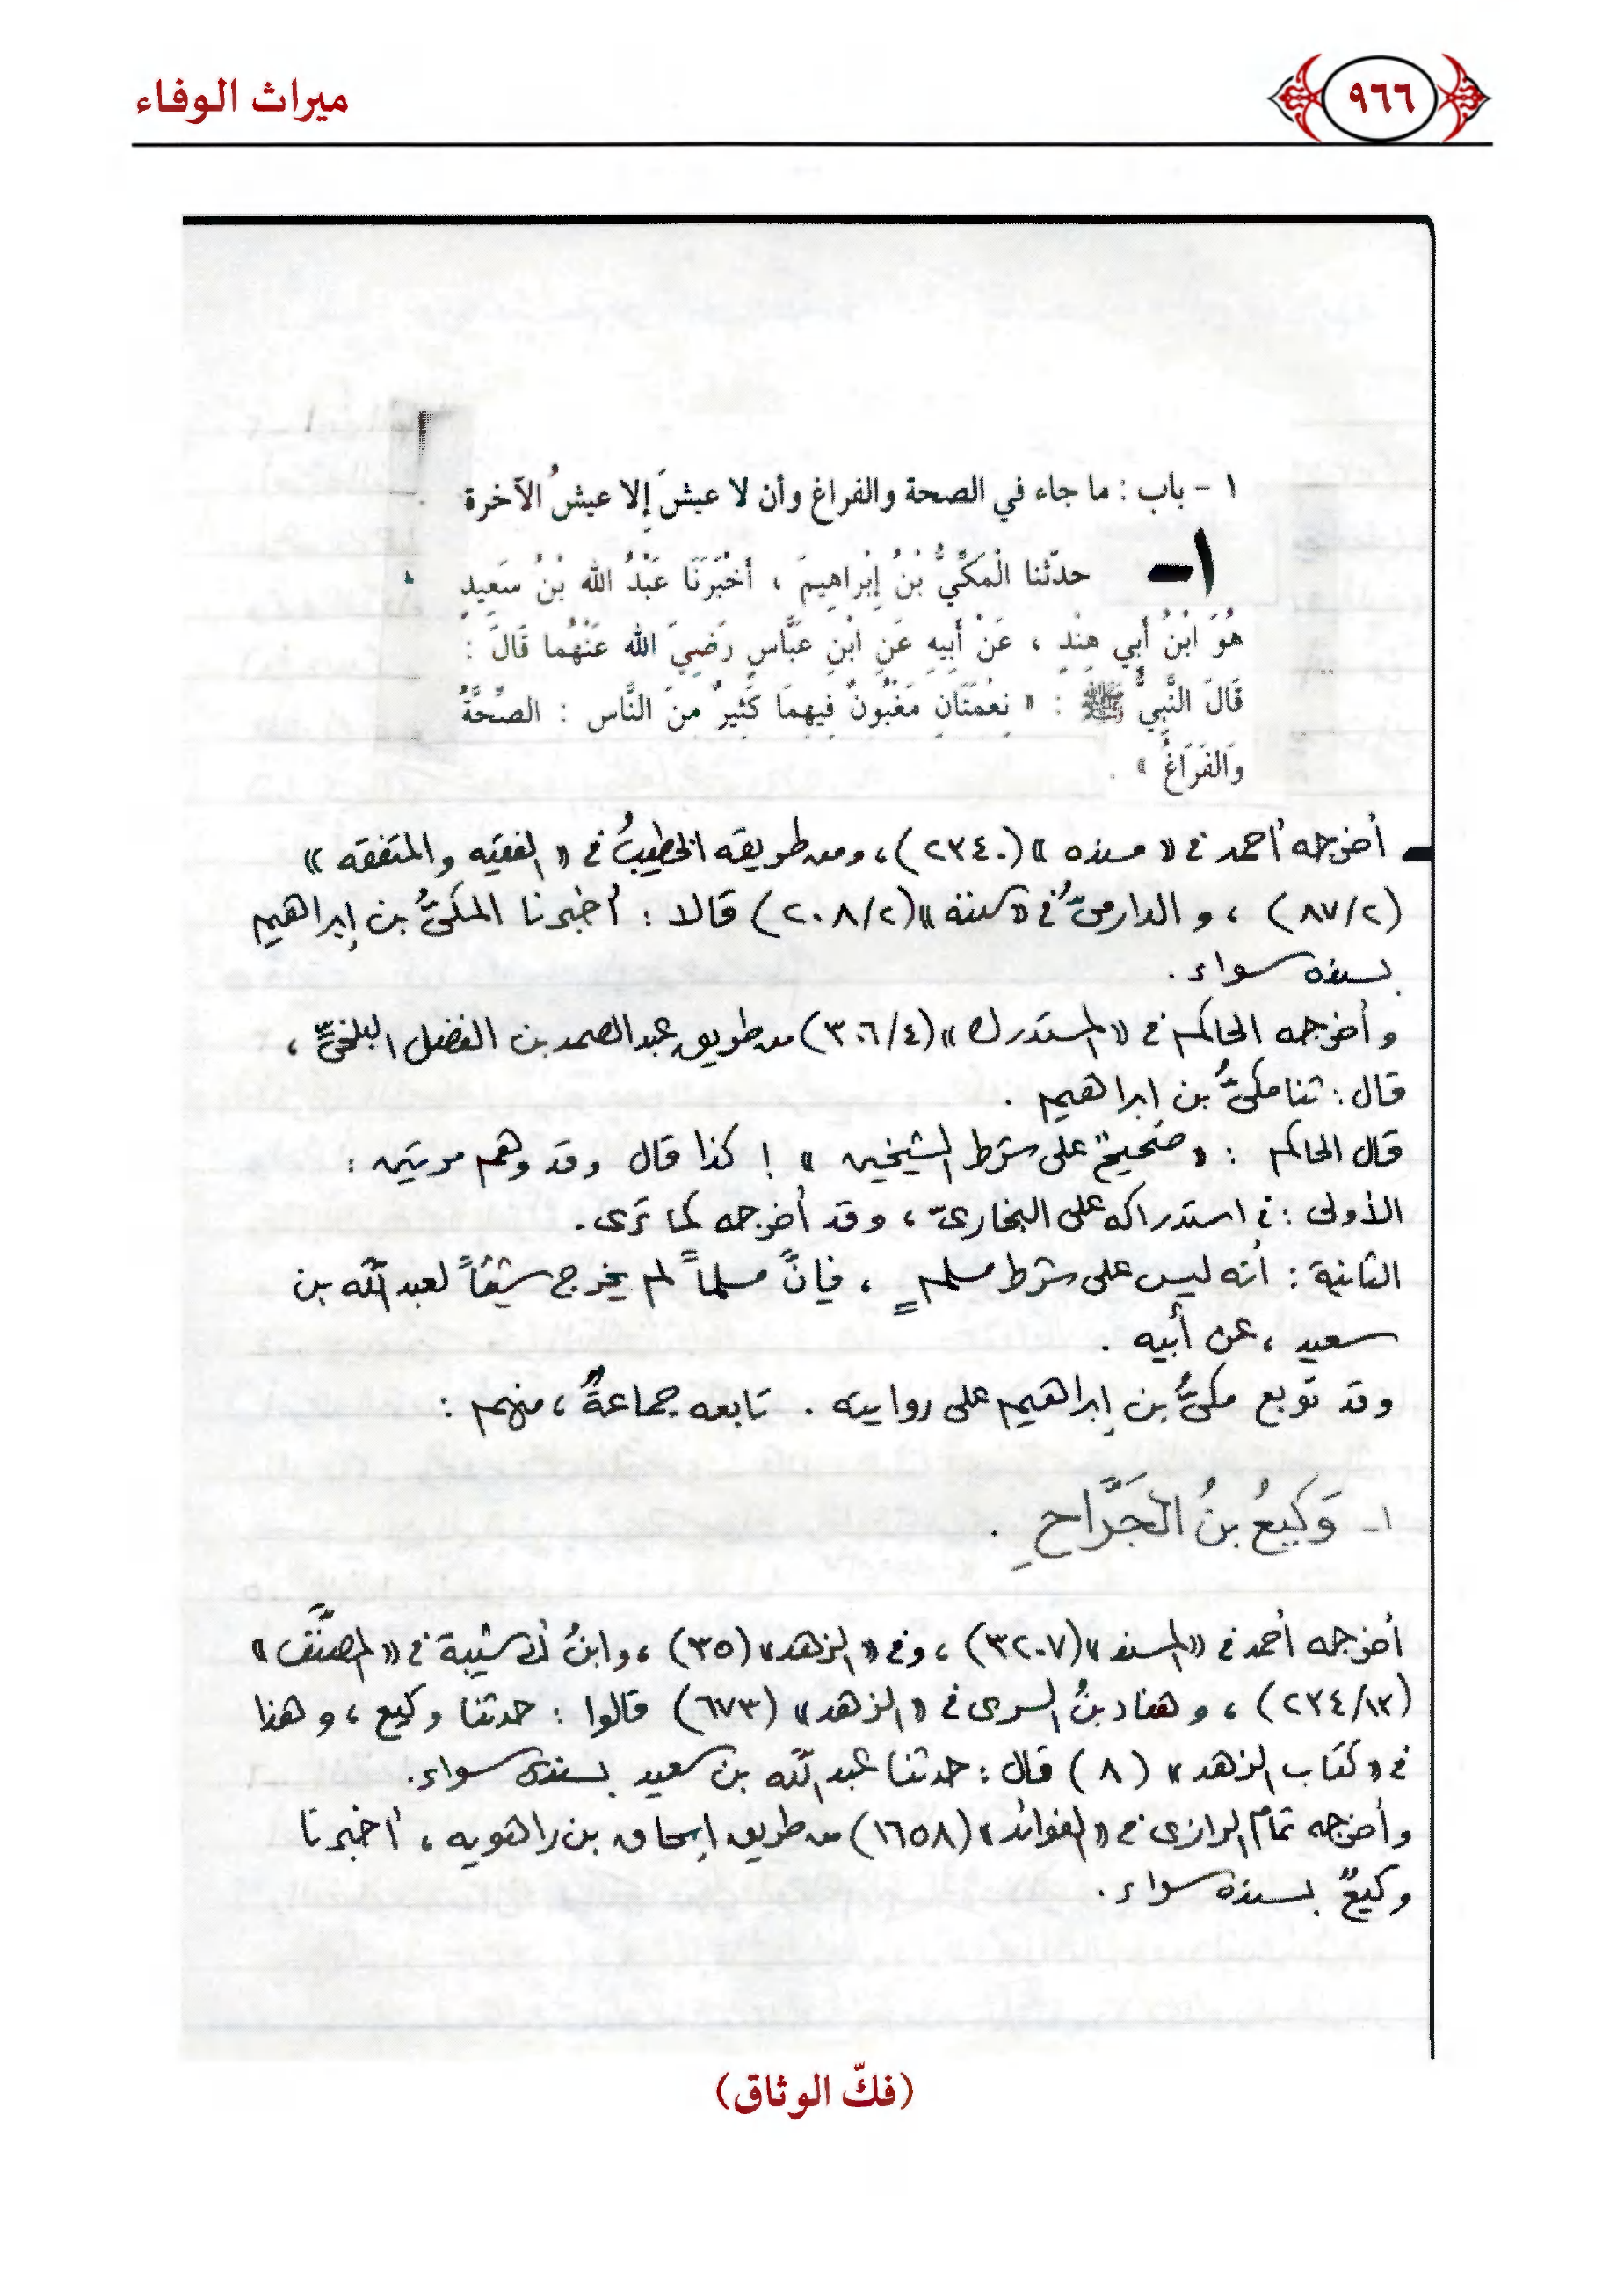 ٩٦٦
ميراث الوفاء
١ - باب : ما جاء في الصحة والفراغ وأن لا عيشَ إلا عيشُ الآخرة
١- حدّثنا الْمَكِّيُّ بْنُ إِبْراهِيمَ ، أَخْبَرَنَا عَبْدُ الله بْنُ سَعِيدٍ
هُوَ ابْنُ أَبِي هِنْدٍ ، عَنْ أَبِيهِ عَنِ ابْنِ عَبَّاسٍ رَضِيَ الله عَنْهُما قَالَ :
قَالَ النَّبِيُّ ﷺ : « نِعْمَتَانِ مَغْبُونٌ فِيهِمَا كَثِيرٌ مِنَ النَّاس : الصِّحَّةُ
وَالفَرَاغُ » .
- أخرجه أحمد في « مسنده » (٢٣٤٠)، ومن طريقه الخطيبُ في « الفقيه والمتفقه »
(٨٧/٢) ، والدارميُّ في « سننه » (٢٠٨/٢) قالا : أخبرنا المكيُّ بن إبراهيم
بسنده سواء .
وأخرجه الحاكم في « المستدرك » (٣٠٦/٤) من طريق عبد الصمد بن الفضل البلخيِّ ،
قال : ثنا مكيُّ بن ابراهيم .
قال الحاكم : « صحيحٌ على شرط الشيخين » ! كذا قال وقد وهم مرتين :
الأولى : في استدراكه على البخاريّ ، وقد أخرجه كما ترى .
الثانية : أنه ليس على شرط مسلمٍ ، فإنَّ مسلماً لم يخرج شيئاً لعبد الله بن
سعيد ، عن أبيه .
وقد توبع مكيُّ بن إبراهيم على روايته . تابعه جماعةٌ ، منهم :
١- وَكيعُ بنُ الجَرَّاحِ .
أخرجه أحمد في « المسند » (٣٢٠٧) ، وفي « الزهد » (٣٥) ، وابنُ أبي شيبة في « المصنَّف »
(٢٣٤/١٣) ، وهناد بنُ السرى في « الزهد » (٦٧٣) قالوا : حدثنا وكيع ، وهذا
في « كتاب الزهد » (٨) قال : حدثنا عبد الله بن سعيد بسنده سواء .
وأخرجه تمام الرازى في « الفوائد » (١٦٥٨) من طريق إسحاق بن راهويه ، أخبرنا
وكيعٌ بسنده سواء .
(فكّ الوثاق)